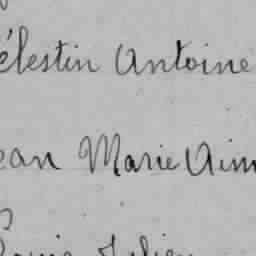 élestin Antoine
ean Marie Aim